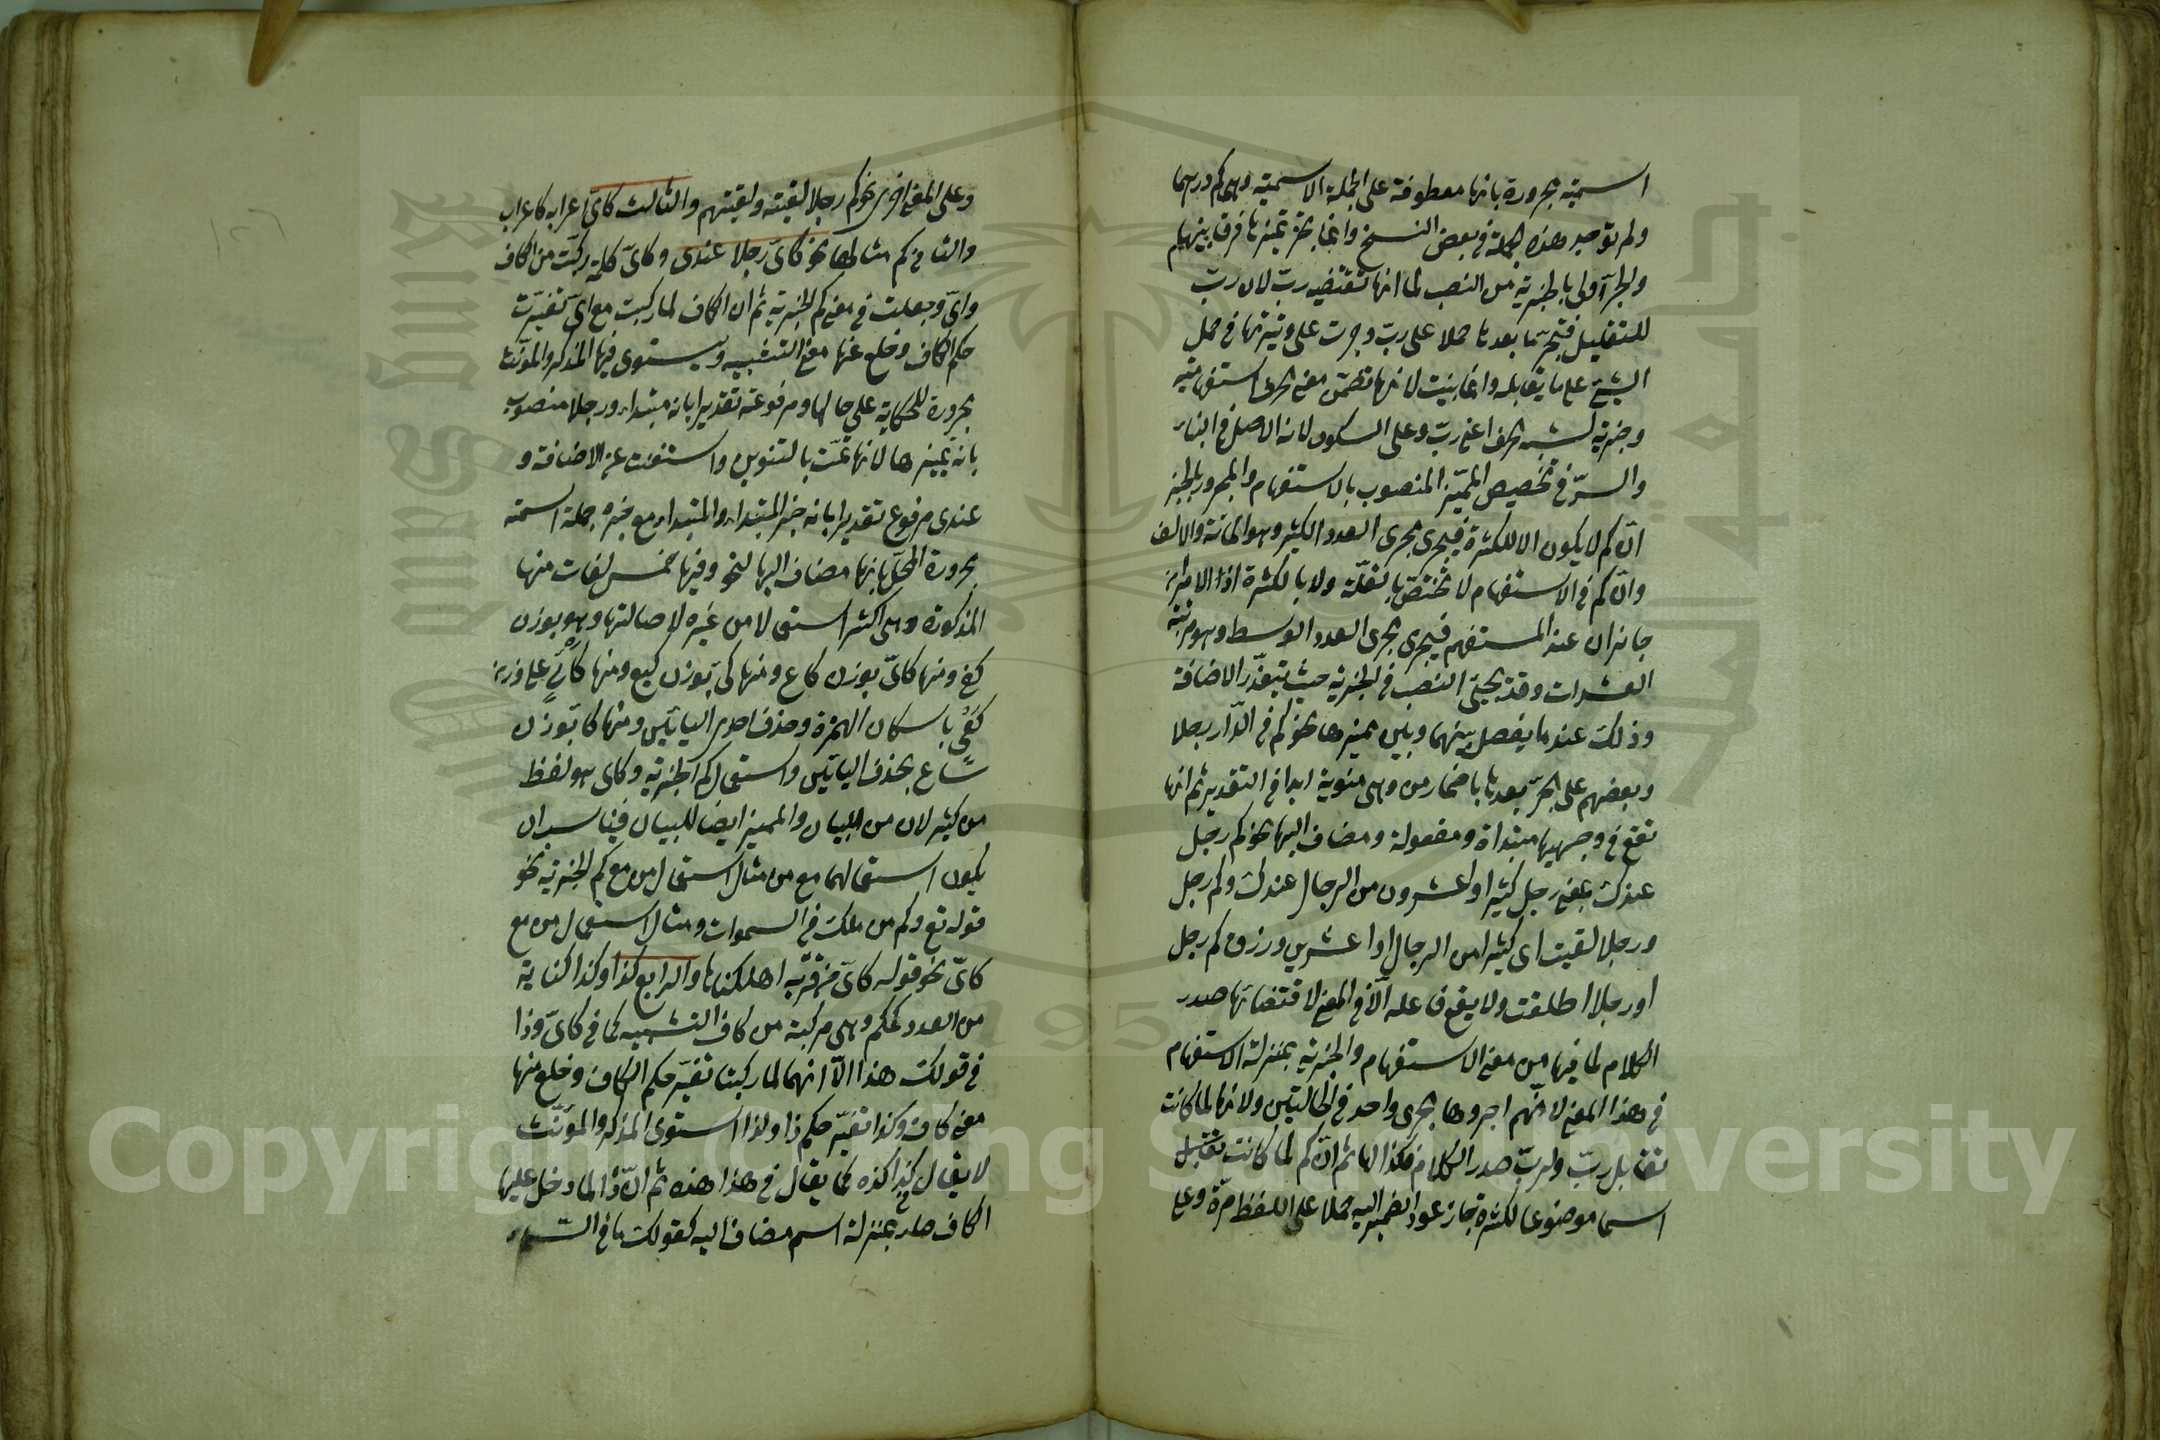 اسمية مجرورة بانها معطوفة على الجملة الاسمية وهى كم درهما
ولم توجد هذه الجملة فى بعض النسخ وانما يجر تميزها فرقا بينهما
والجر اولى بالخبرية من النصب لما انها تقتضيه رب لان رب
للتقليل فتجر ما بعدها حملا على رب وجرت على وتيرتها فى حمل
الشئ على ما يقابله وانما بنيت لانها تضمن معنى الحرف استفهامية
وخبرية لشبه الحرف اعنى رب وعلى السكون لانه الاصل فى البناء
والسر فى تخصيص المميز المنصوب بالاستفهام والمجرور بالخبر
ان كم لا يكون الا للكثرة فيجرى مجرى العدد الكثير وهو المائة والالف
وان كم فى الاستفهام لا تختص بالقلة ولا بالكثرة اذا الامران
جائزان عند المستفهم فيجرى مجرى العدد الوسط وهو مرتبة
العشرات وقد يجئ النصب فى الخبرية حيث يتعذر الاضافة
وذلك عند ما يفصل بينهما وبين مميزها نحو كم فى الدار رجلا
وبعضهم على الجر بعدها باضمار من وهى منوية ابدا فى التقدير ثم انها
تقع فى وجهيها مبتداة ومفعولة ومضاف اليها نحو كم رجل
عندك بمعنى رجل كثير او عشرون من الرجال عندك وكم رجل
ورجلا لقيت اى كثيرا من الرجال او عشرين ورزق كم رجل
او رجلا اطلقت ولا يقع فاعله الا فى المعنى لاقتضائها صدر
الكلام لما فيها من معنى الاستفهام والخبرية بمنزلة الاستفهام
فى هذا المعنى لانهم اجروها مجرى واحد فى الحالتين ولانها لما كانت
تقابل رب ولرب صدر الكلام فكذا لها ثم ان كم لما كانت
اسما موضوعا لكثرة جاز عود الضمير اليه حملا على اللفظ مرة وعلى
وعلى المعنى اخرى نحو كم رجلا لقيته ولقيتهم والثالث كاى اعرابه كاعراب
والثانى كم مثالها نحو كاى رجلا عندى وكاى كلمة ركبت من الكاف
واى وجعلت فى معنى كم الخبرية ثم ان الكاف لما ركبت مع اى تغيرت
حكم الكاف وخلع عنها معنى التشبيه ويستوى فيها المذكر والمؤنث
مجرورة للحكاية على حالها ومرفوعة تقديرا بانه مبتداء ورجلا منصوب
بانه تميزها لانها تمت بالتنوين واستغنت عن الاضافة و
عندى مرفوع تقديرا بانه خبر المبتداء والمبتداء مع خبره جملة اسمية
مجرورة المحل بانها مضاف اليها لنحو وفيها خمس لغات منها
المذكورة وهى اكثر استعمالا من غيره لاصالتها وهو بوزن
كعى ومنها كائ بوزن كاع ومنها كى بوزن كيع ومنها كأى على وزن
كعى باسكان الهمزة وحذف احدى اليائين ومنها كا بوزن
شاع بحذف اليائين واستعمال كم الخبرية وكاى هو لفظ
من كثير لان من للبيان والمميز ايضا للبيان فيناسب ان
يكون استعمالهما مع من مثال استعمال من مع كم الخبرية نحو
قوله تع وكم من ملك فى السموات ومثال استعمال من مع
كاى نحو قوله كاى من قرية اهلكناها والرابع كذا وكذا كناية
من العدد ككم وهى مركبة من كاف التشبيه كما فى كاى وذا
فى قولك هذا الا انهما لما ركبتا تغير حكم الكاف وخلع منها
معنى كاف وكذا تغير حكم ذا ولذا استوى المذكر والمؤنث
لا يقال كذا كذه كما يقال فى هذا هذه ثم ان ذا لما دخل عليها
الكاف صار بمنزلة اسم مضاف اليه كقولك ما فى السماء
Copyright © King Saud University
1957